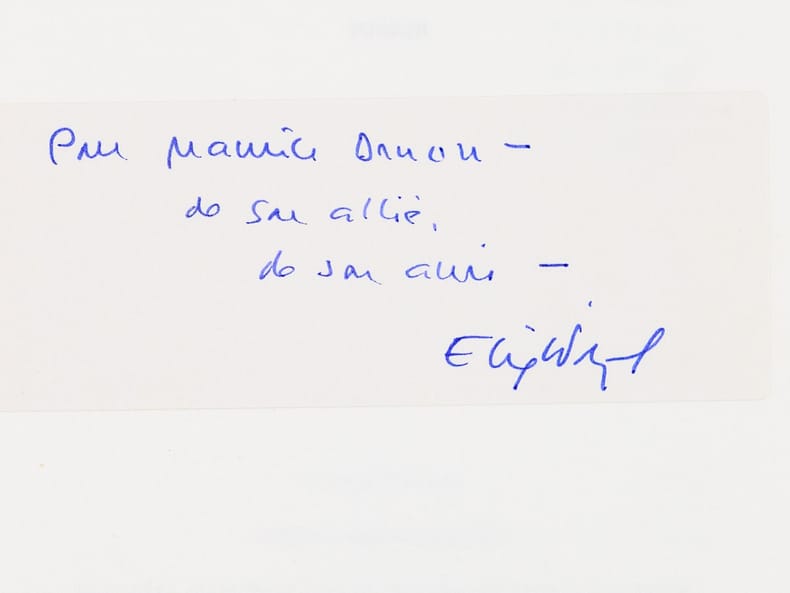 Pour Maurice Druon –
de son allié,
de son ami –
Elie Wiesel